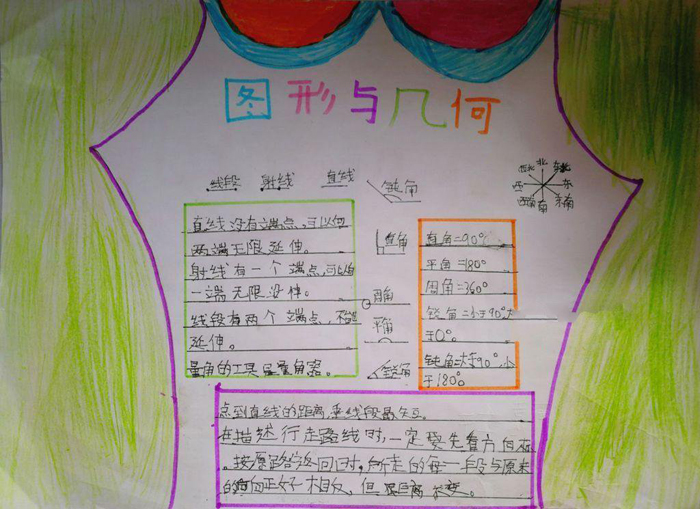 图形与几何
线段 射线 直线 钝角
北
西北 东北
西 东
西南 南 东南
直线没有端点,可以向
两端无限延伸。
射线有一个端点,可以向
一端无限延伸。
线段有两个端点,不能
延伸。
量角的工具是量角器。
直角
周角
平角
锐角
直角=90°
平角=180°
周角=360°
锐角=小于90°大
于0°。
钝角=大于90°小
于180°
点到直线的距离,垂线段最短。
在描述行走路线时,一定要先看方向
按原路返回时,所走的每一段与原来
的方向正好相反,但距离不变。